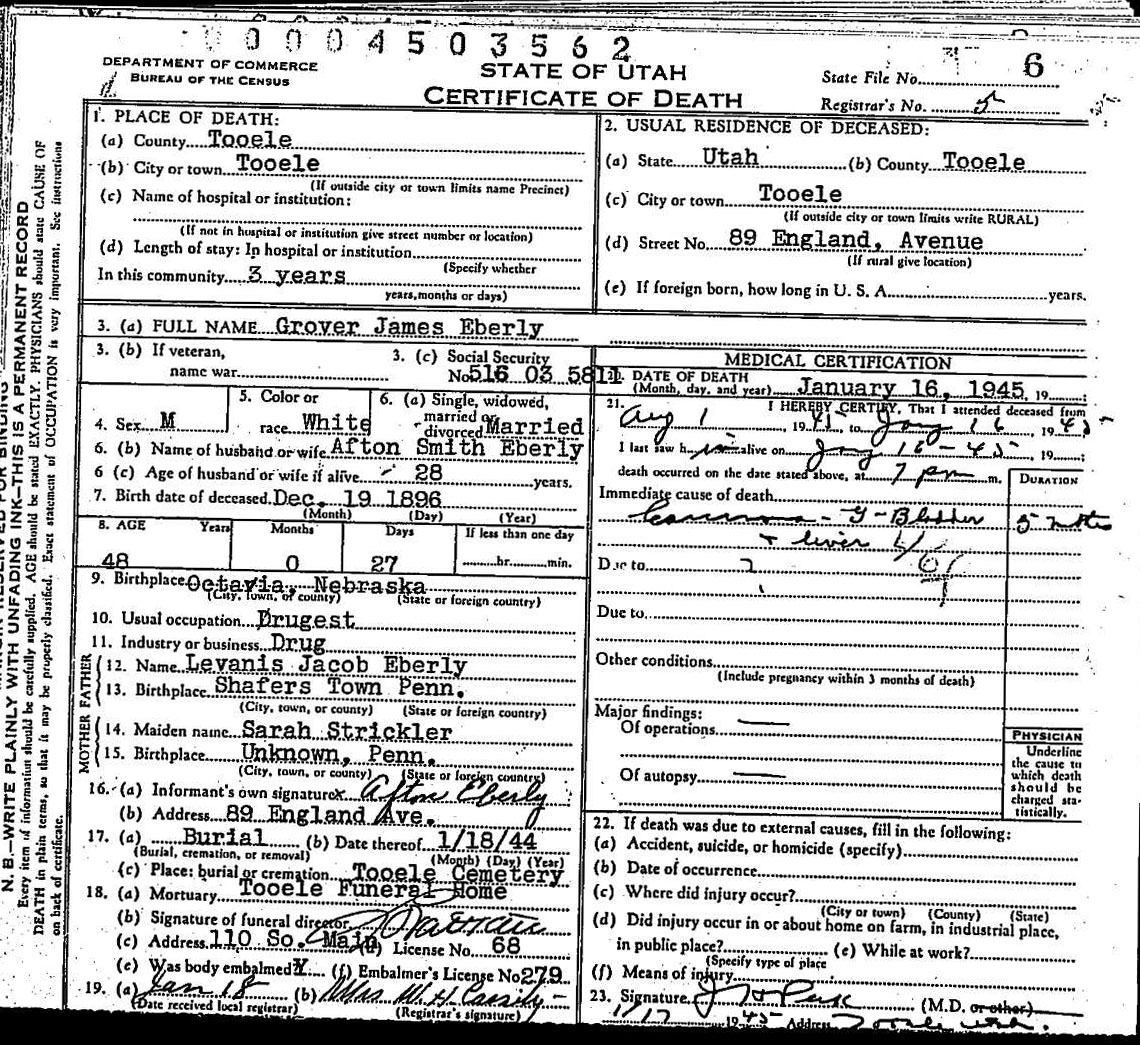 0 0 0 0 4 5 0 3 5 6 2
DEPARTMENT OF COMMERCE
BUREAU OF THE CENSUS
STATE OF UTAH
CERTIFICATE OF DEATH
State File No. 6
Registrar's No. 5
N. B.—WRITE PLAINLY WITH UNFADING INK—THIS IS A PERMANENT RECORD
Every item of information should be carefully supplied. AGE should be stated EXACTLY. PHYSICIANS should state CAUSE OF
DEATH in plain terms, so that it may be properly classified. Exact statement of OCCUPATION is very important. See instructions
on back of certificate.
1. PLACE OF DEATH:
(a) County Tooele
(b) City or town Tooele
(If outside city or town limits name Precinct)
(c) Name of hospital or institution:
(If not in hospital or institution give street number or location)
(d) Length of stay: In hospital or institution
(Specify whether
In this community 3 years
years, months or days)
2. USUAL RESIDENCE OF DECEASED:
(a) State Utah (b) County Tooele
(c) City or town Tooele
(If outside city or town limits write RURAL)
(d) Street No. 89 England, Avenue
(If rural give location)
(e) If foreign born, how long in U. S. A. years.
3. (a) FULL NAME Grover James Eberly
3. (b) If veteran,
name war
3. (c) Social Security
No. 516 03 5811
4. Sex M
5. Color or
race White
6. (a) Single, widowed,
married or
divorced Married
6. (b) Name of husband or wife Afton Smith Eberly
6 (c) Age of husband or wife if alive 28 years.
7. Birth date of deceased Dec. 19 1896
(Month) (Day) (Year)
8. AGE Years Months Days If less than one day
48 0 27 hr. min.
9. Birthplace Octavia, Nebraska
(City, town, or county) (State or foreign country)
10. Usual occupation Drugest
11. Industry or business Drug
FATHER
12. Name Levanis Jacob Eberly
13. Birthplace Shafers Town Penn.
(City, town, or county) (State or foreign country)
MOTHER
14. Maiden name Sarah Strickler
15. Birthplace Unknown, Penn.
(City, town, or county) (State or foreign country)
16. (a) Informant's own signature x Afton Eberly
(b) Address 89 England Ave.
17. (a) Burial (b) Date thereof 1/18/44
(Burial, cremation, or removal) (Month) (Day) (Year)
(c) Place: burial or cremation Tooele Cemetery
18. (a) Mortuary Tooele Funeral Home
(b) Signature of funeral director
(c) Address 110 So. Main (d) License No. 68
(e) Was body embalmed Y (f) Embalmer's License No. 279
19. (a) Jan 18 (b) Mrs W. H. Cassity
(Date received local registrar) (Registrar's signature)
MEDICAL CERTIFICATION
20. DATE OF DEATH
(Month, day, and year) January 16, 1945, 19
21. I HEREBY CERTIFY, That I attended deceased from
Aug 1, 19 to Jany 16, 1945
I last saw him alive on Jany 16-45, 19;
death occurred on the date stated above, at 7 pm m.
DURATION
Immediate cause of death
- G-Bladder
+ liver
Due to ?
Due to
Other conditions
(Include pregnancy within 3 months of death)
Major findings:
Of operations —
Of autopsy —
PHYSICIAN
Underline
the cause to
which death
should be
charged sta-
tistically.
22. If death was due to external causes, fill in the following:
(a) Accident, suicide, or homicide (specify)
(b) Date of occurrence
(c) Where did injury occur?
(City or town) (County) (State)
(d) Did injury occur in or about home on farm, in industrial place,
in public place? (e) While at work?
(Specify type of place
(f) Means of injury
23. Signature J H Peck (M.D. or other)
1/17 1945 Address Tooele Utah.